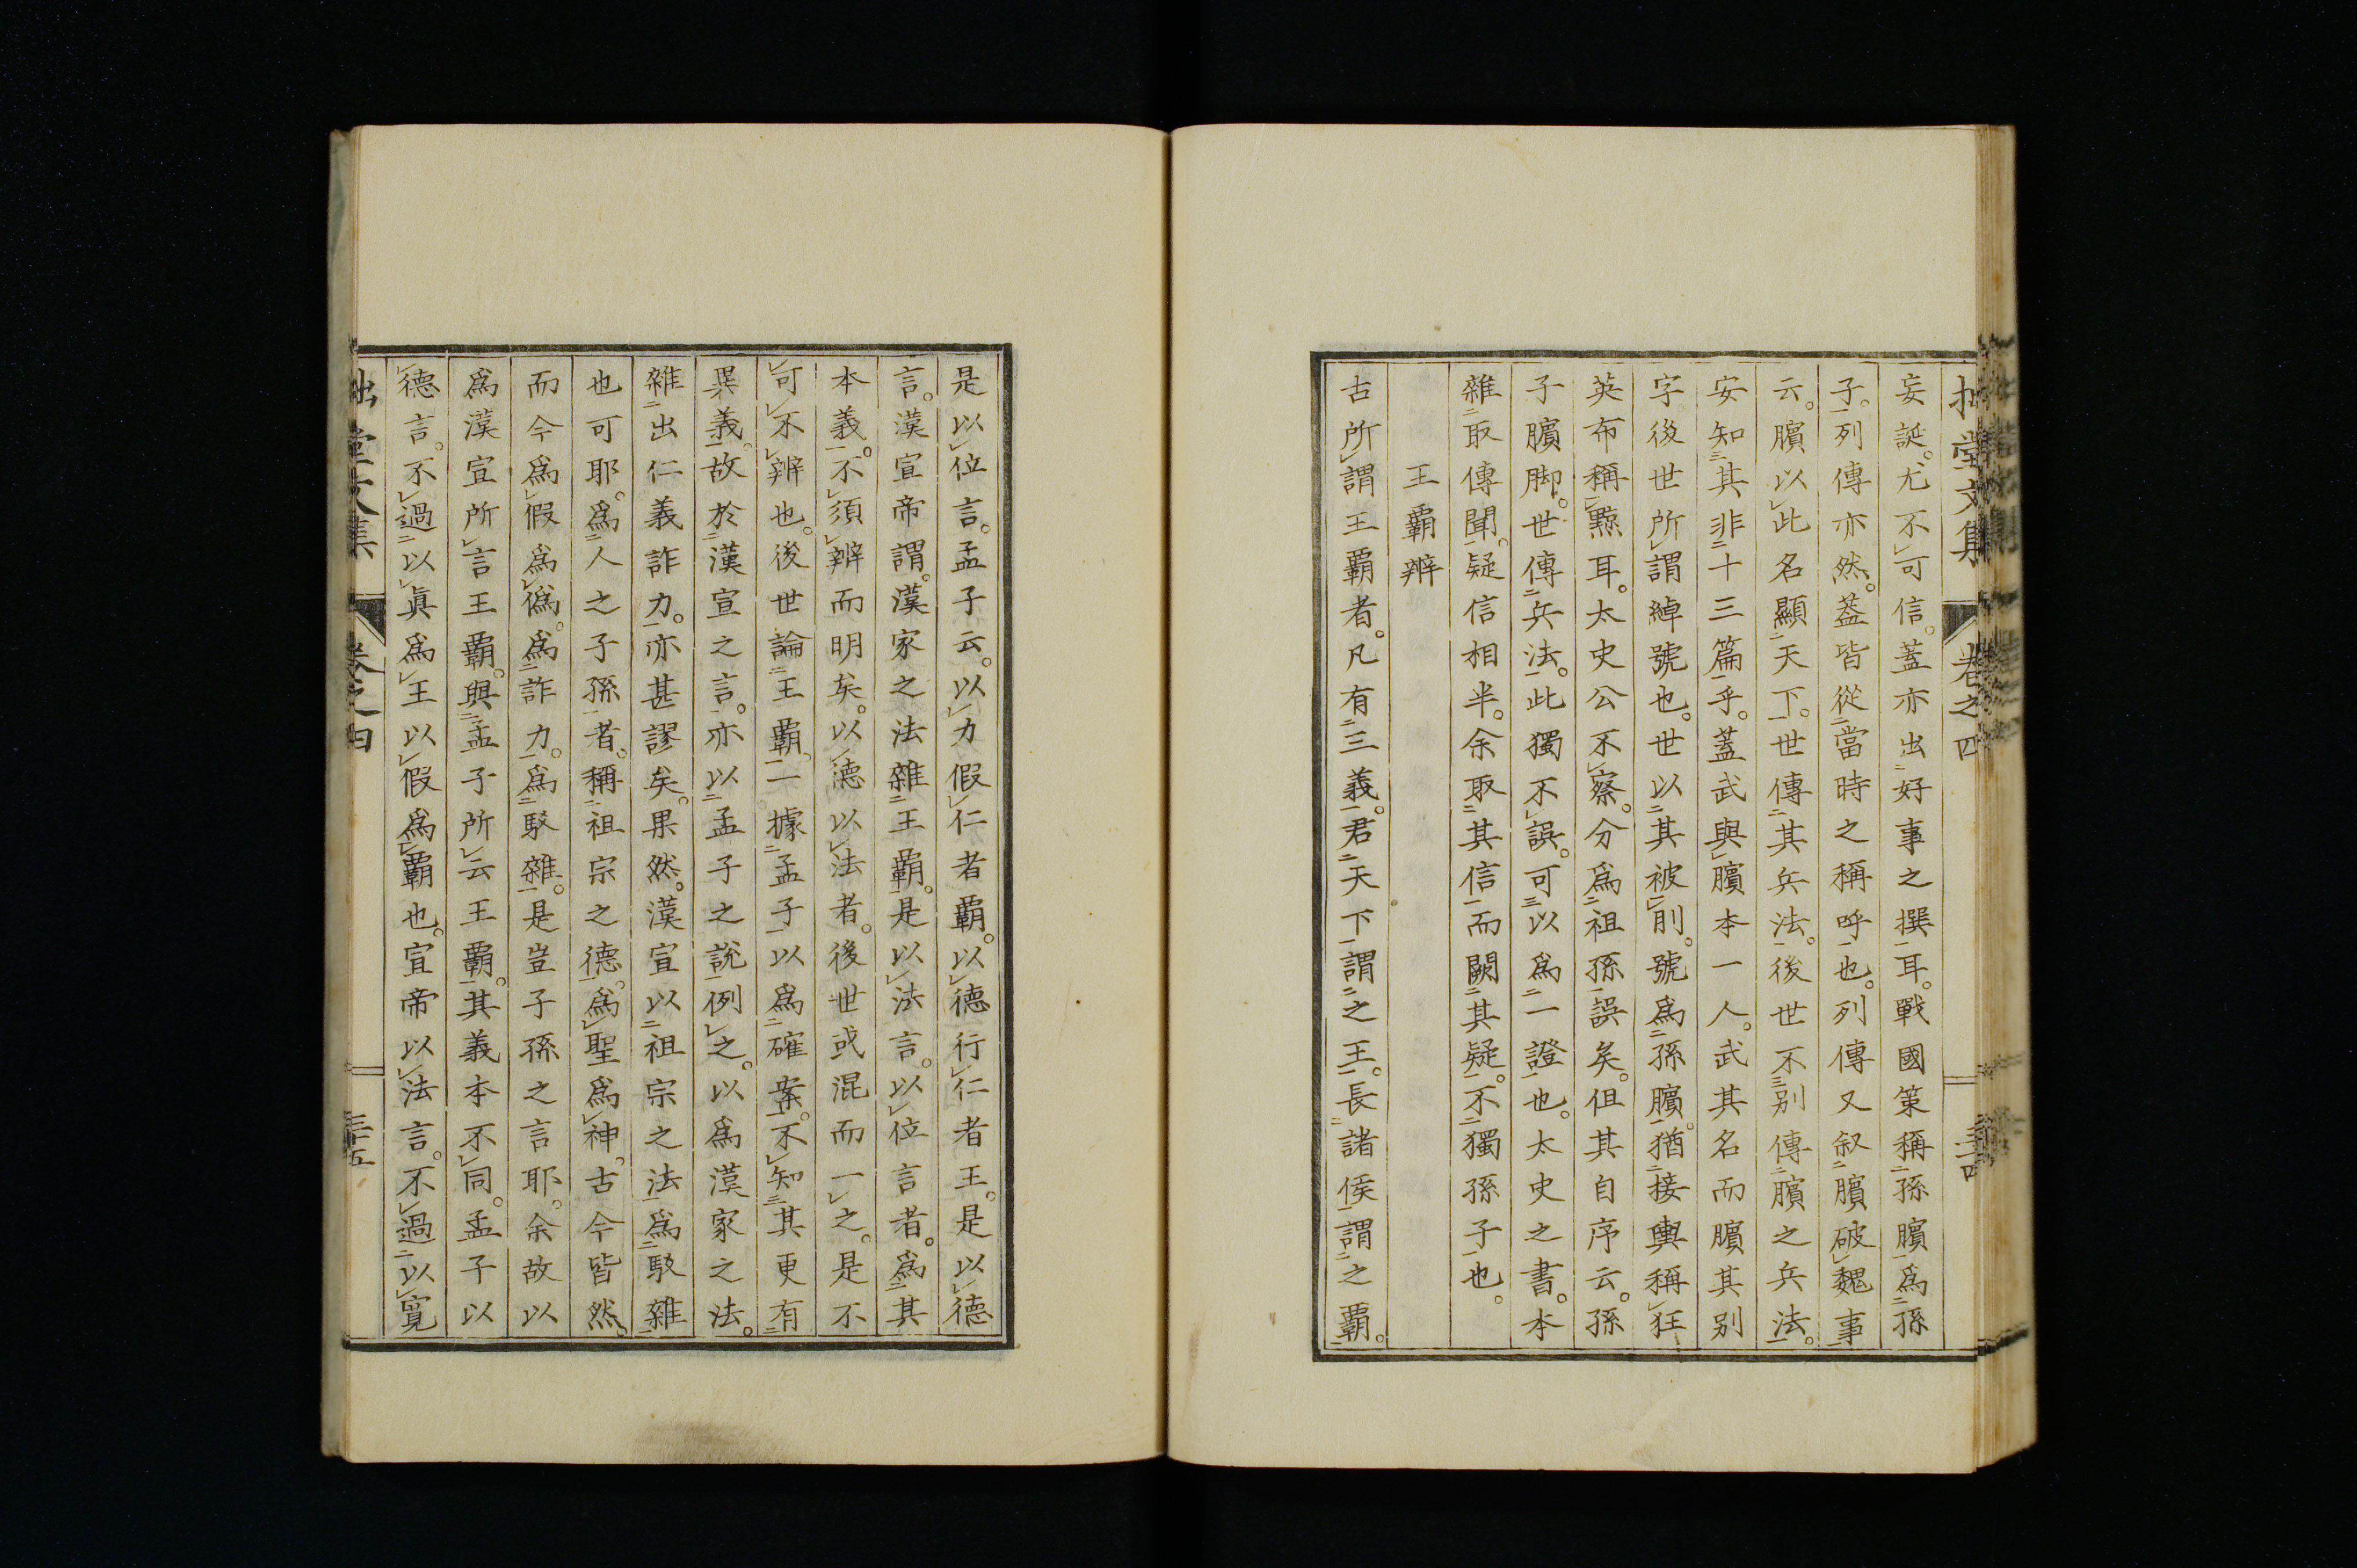 拙堂文集 卷之四 三十四
妄誕。尤不可信。蓋亦出好事之撰耳。戰國策稱孫臏爲孫
子。列傳亦然。蓋皆從當時之稱呼也。列傳又叙臏破魏事
云。臏以此名顯天下。世傳其兵法。後世不別傳臏之兵法。
安知其非十三篇乎。蓋武與臏本一人。武其名而臏其別
字後世所謂綽號也。世以其被刖。號爲孫臏。猶接輿稱狂
英布稱黥耳。太史公不察。分爲祖孫誤矣。但其自序云。孫
子臏脚。世傳兵法。此獨不誤。可以爲一證也。太史之書。本
雜取傳聞。疑信相半。余取其信而闕其疑。不獨孫子也。
王霸辨
古所謂王霸者。凡有三義。君天下謂之王。長諸侯謂之霸。
是以位言。孟子云。以力假仁者霸。以德行仁者王。是以德
言。漢宣帝謂。漢家之法雜王霸。是以法言。以位言者。爲其
本義。不須辨而明矣。以德以法者。後世或混而一之。是不
可不辨也。後世論王霸。一據孟子以爲確案。不知其更有
異義。故於漢宣之言。亦以孟子之說例之。以爲漢家之法。
雜出仁義詐力。亦甚謬矣。果然。漢宣以祖宗之法爲駁雜
也可耶。爲人之子孫者。稱祖宗之德。爲聖爲神。古今皆然。
而今爲假爲僞。爲詐力。爲駁雜。是豈子孫之言耶。余故以
爲漢宣所言王霸。與孟子所云王霸。其義本不同。孟子以
德言。不過以眞爲王以假爲霸也。宣帝以法言。不過以寬
拙堂文集 卷之四 三十五